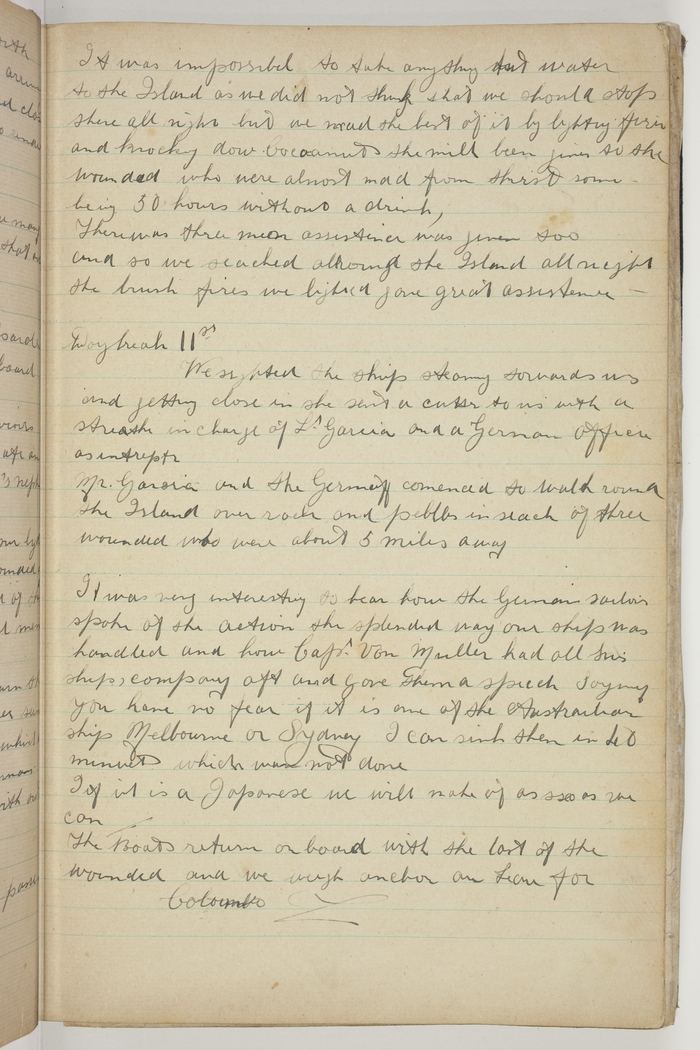 It was impossibel to take anything but water
to the Island as we did not think that we should stop
there all night but we mad the best of it by lighting fires
and knocking dow Cocoanuts the milk been given to the
wounded who were almost mad from thirst some
being 30 hours without a drink,
There was three men assistince was given too
and so we seached allround the Island all night
the brush fires we lighted gave great assistence —
Daybreak 11st
We sighted the ships steaming towards us
and getting close in she sent a cutter to us with a
in charge of Lt Garcia and a German Officer
as intreptr
Mr. Garcia and the German comenced to walk round
the Island over rock and pebbls in seach of three
wounded who were about 5 miles away
It was very interesting to hear how the German sailors
spoke of the action the splended way our ship was
handled and how Capt. Von Muller had all his
ships, company aft and gave them a speech saying
you have no fear if it is one of the Australian
ships Melbourne or Sydney I can sink them in 40
minuets which was not done
If it is a Japanese we will make of as soo as we
can
The Boats return onboard with the last of the
wounded and we weigh anchor an for
Colombo